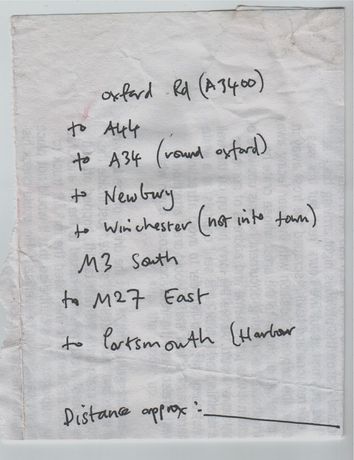 Oxford Rd (A3400)
to A44
to A34 (round oxford)
to Newbury
to Winchester (not into town)
M3 South
to M27 East
to Portsmouth (Harbour
Distance approx :- ____________